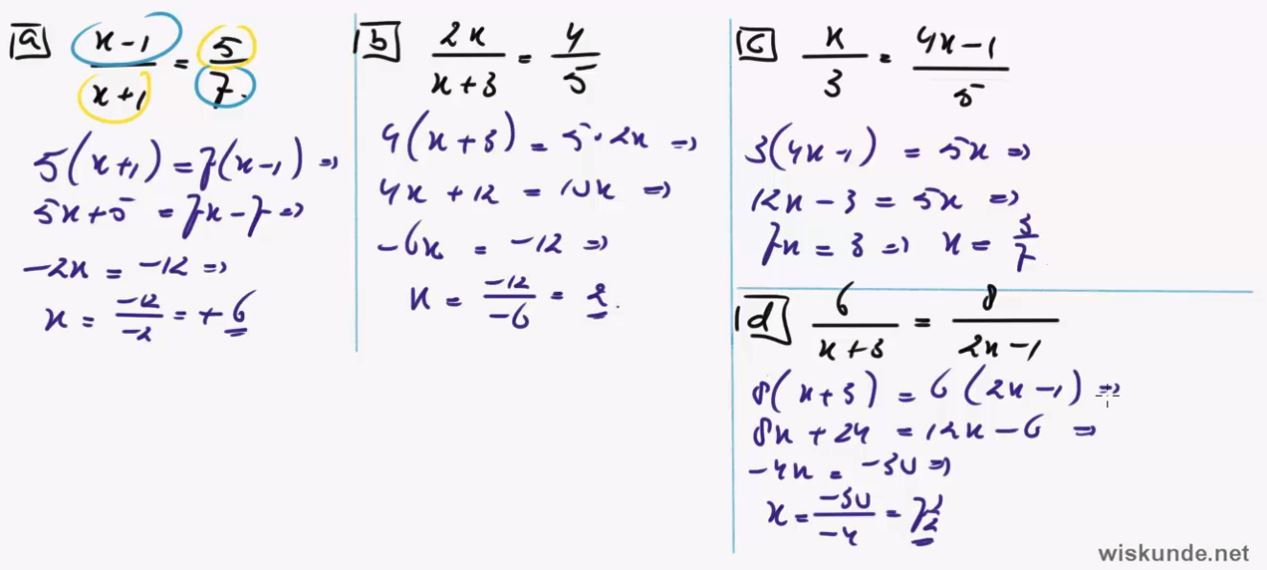 a (x-1)/(x+1) = 5/7.
5(x+1) = 7(x-1) ⇒
5x+5 = 7x-7 ⇒
-2x = -12 ⇒
x = -12/-2 = +6
b 2x/(x+3) = 4/5
4(x+3) = 5·2x ⇒
4x+12 = 10x ⇒
-6x = -12 ⇒
x = -12/-6 = 2.
c x/3 = (4x-1)/5
3(4x-1) = 5x ⇒
12x-3 = 5x ⇒
7x = 3 ⇒ x = 3/7
d 6/(x+3) = 8/(2x-1)
8(x+3) = 6(2x-1) ⇒
8x+24 = 12x-6 ⇒
-4x = -30 ⇒
x = -30/-4 = 7½
wiskunde.net